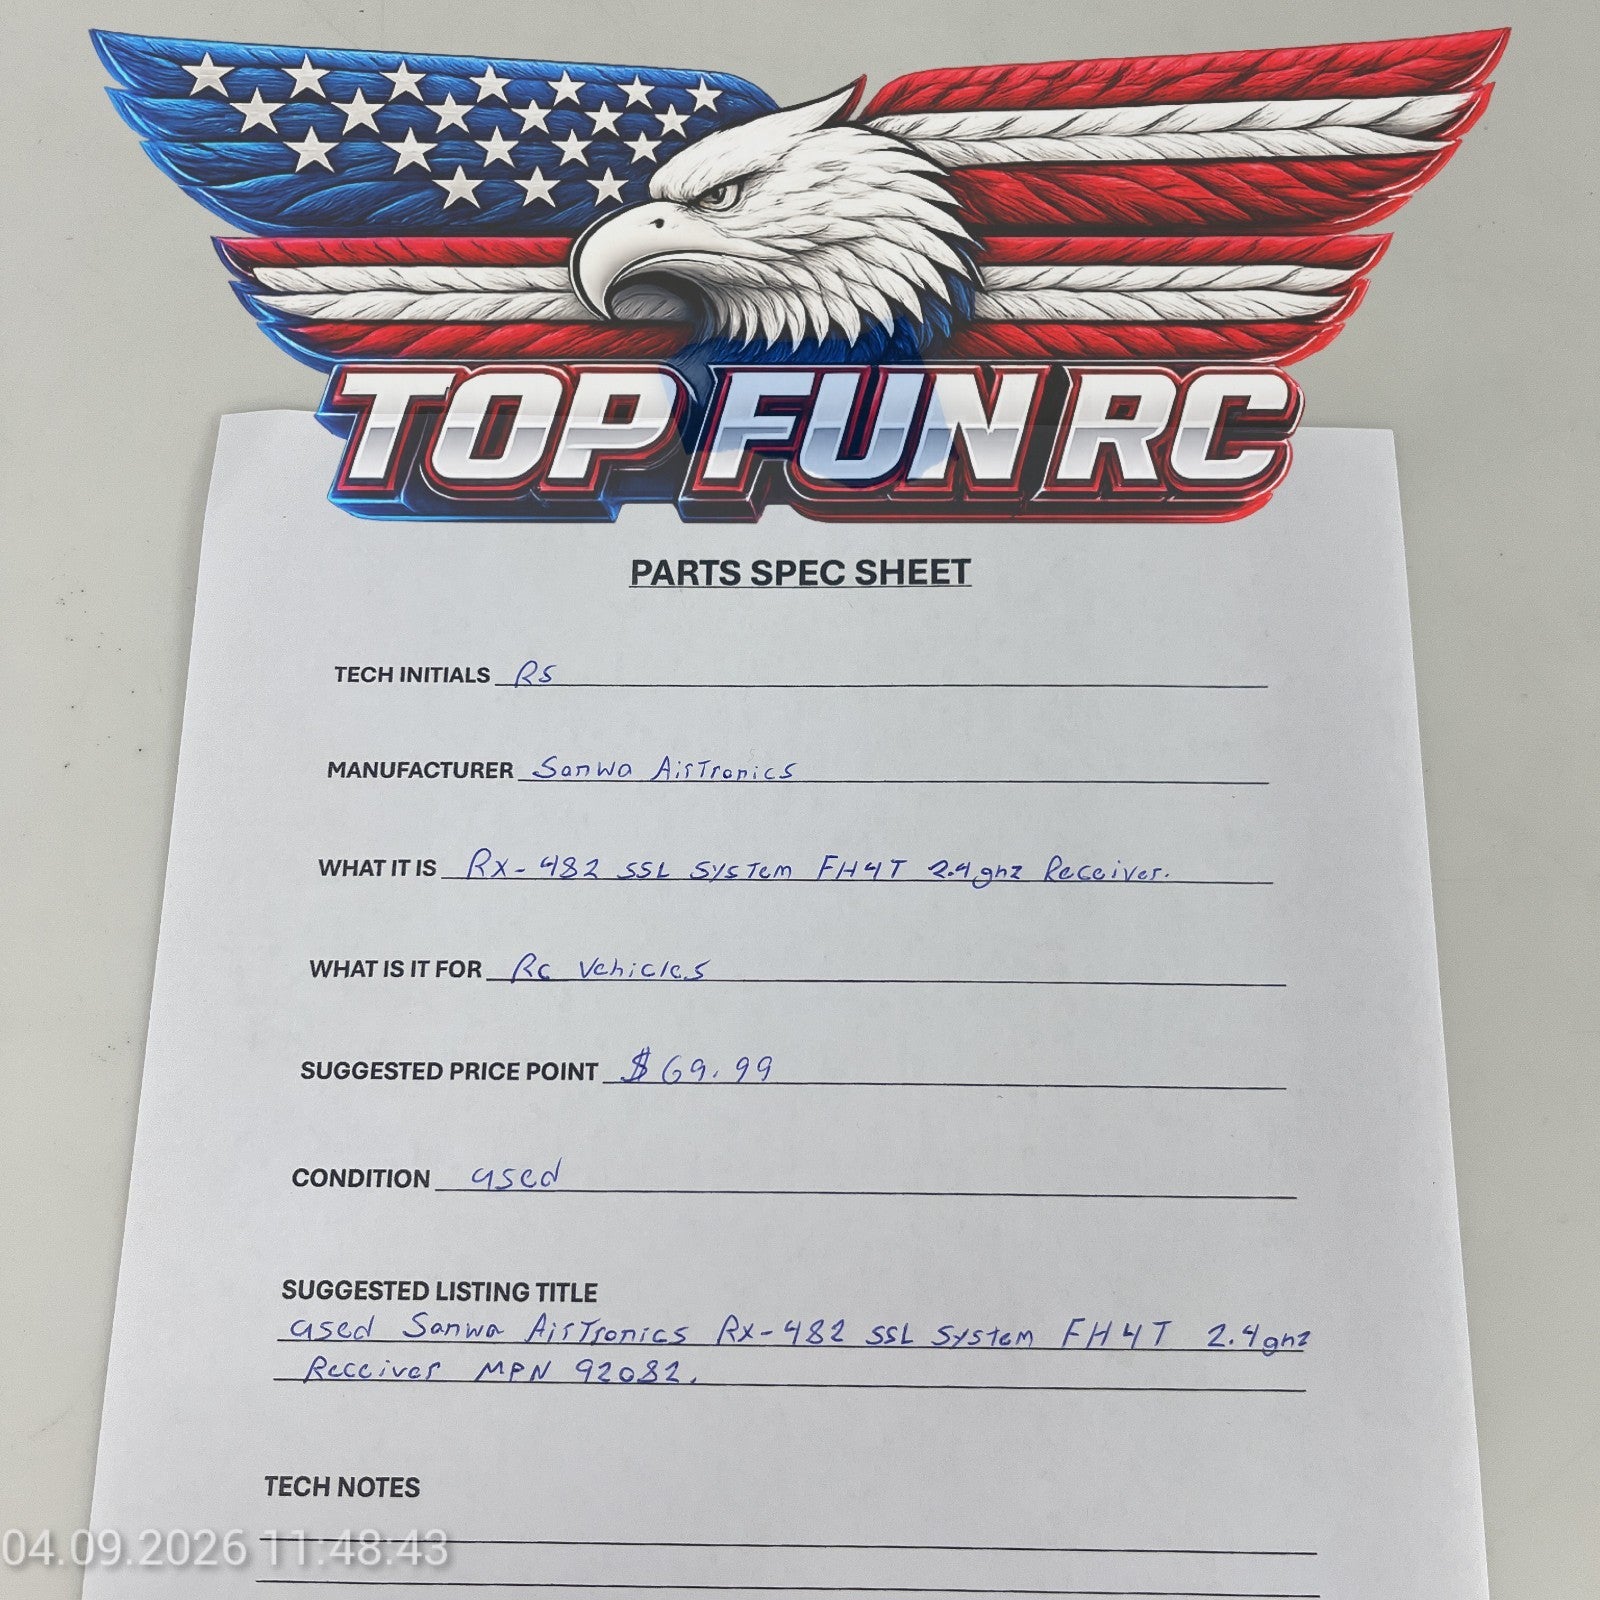 TOP FUN RC
PARTS SPEC SHEET
TECH INITIALS RS
MANUFACTURER Sanwa AirTronics
WHAT IT IS Rx-482 SSL System FH4T 2.4ghz Receiver.
WHAT IS IT FOR Rc Vehicles
SUGGESTED PRICE POINT $69.99
CONDITION used
SUGGESTED LISTING TITLE
used Sanwa AirTronics Rx-482 SSL System FH4T 2.4ghz
Receiver MPN 92082.
TECH NOTES
04.09.2026 11:48:43